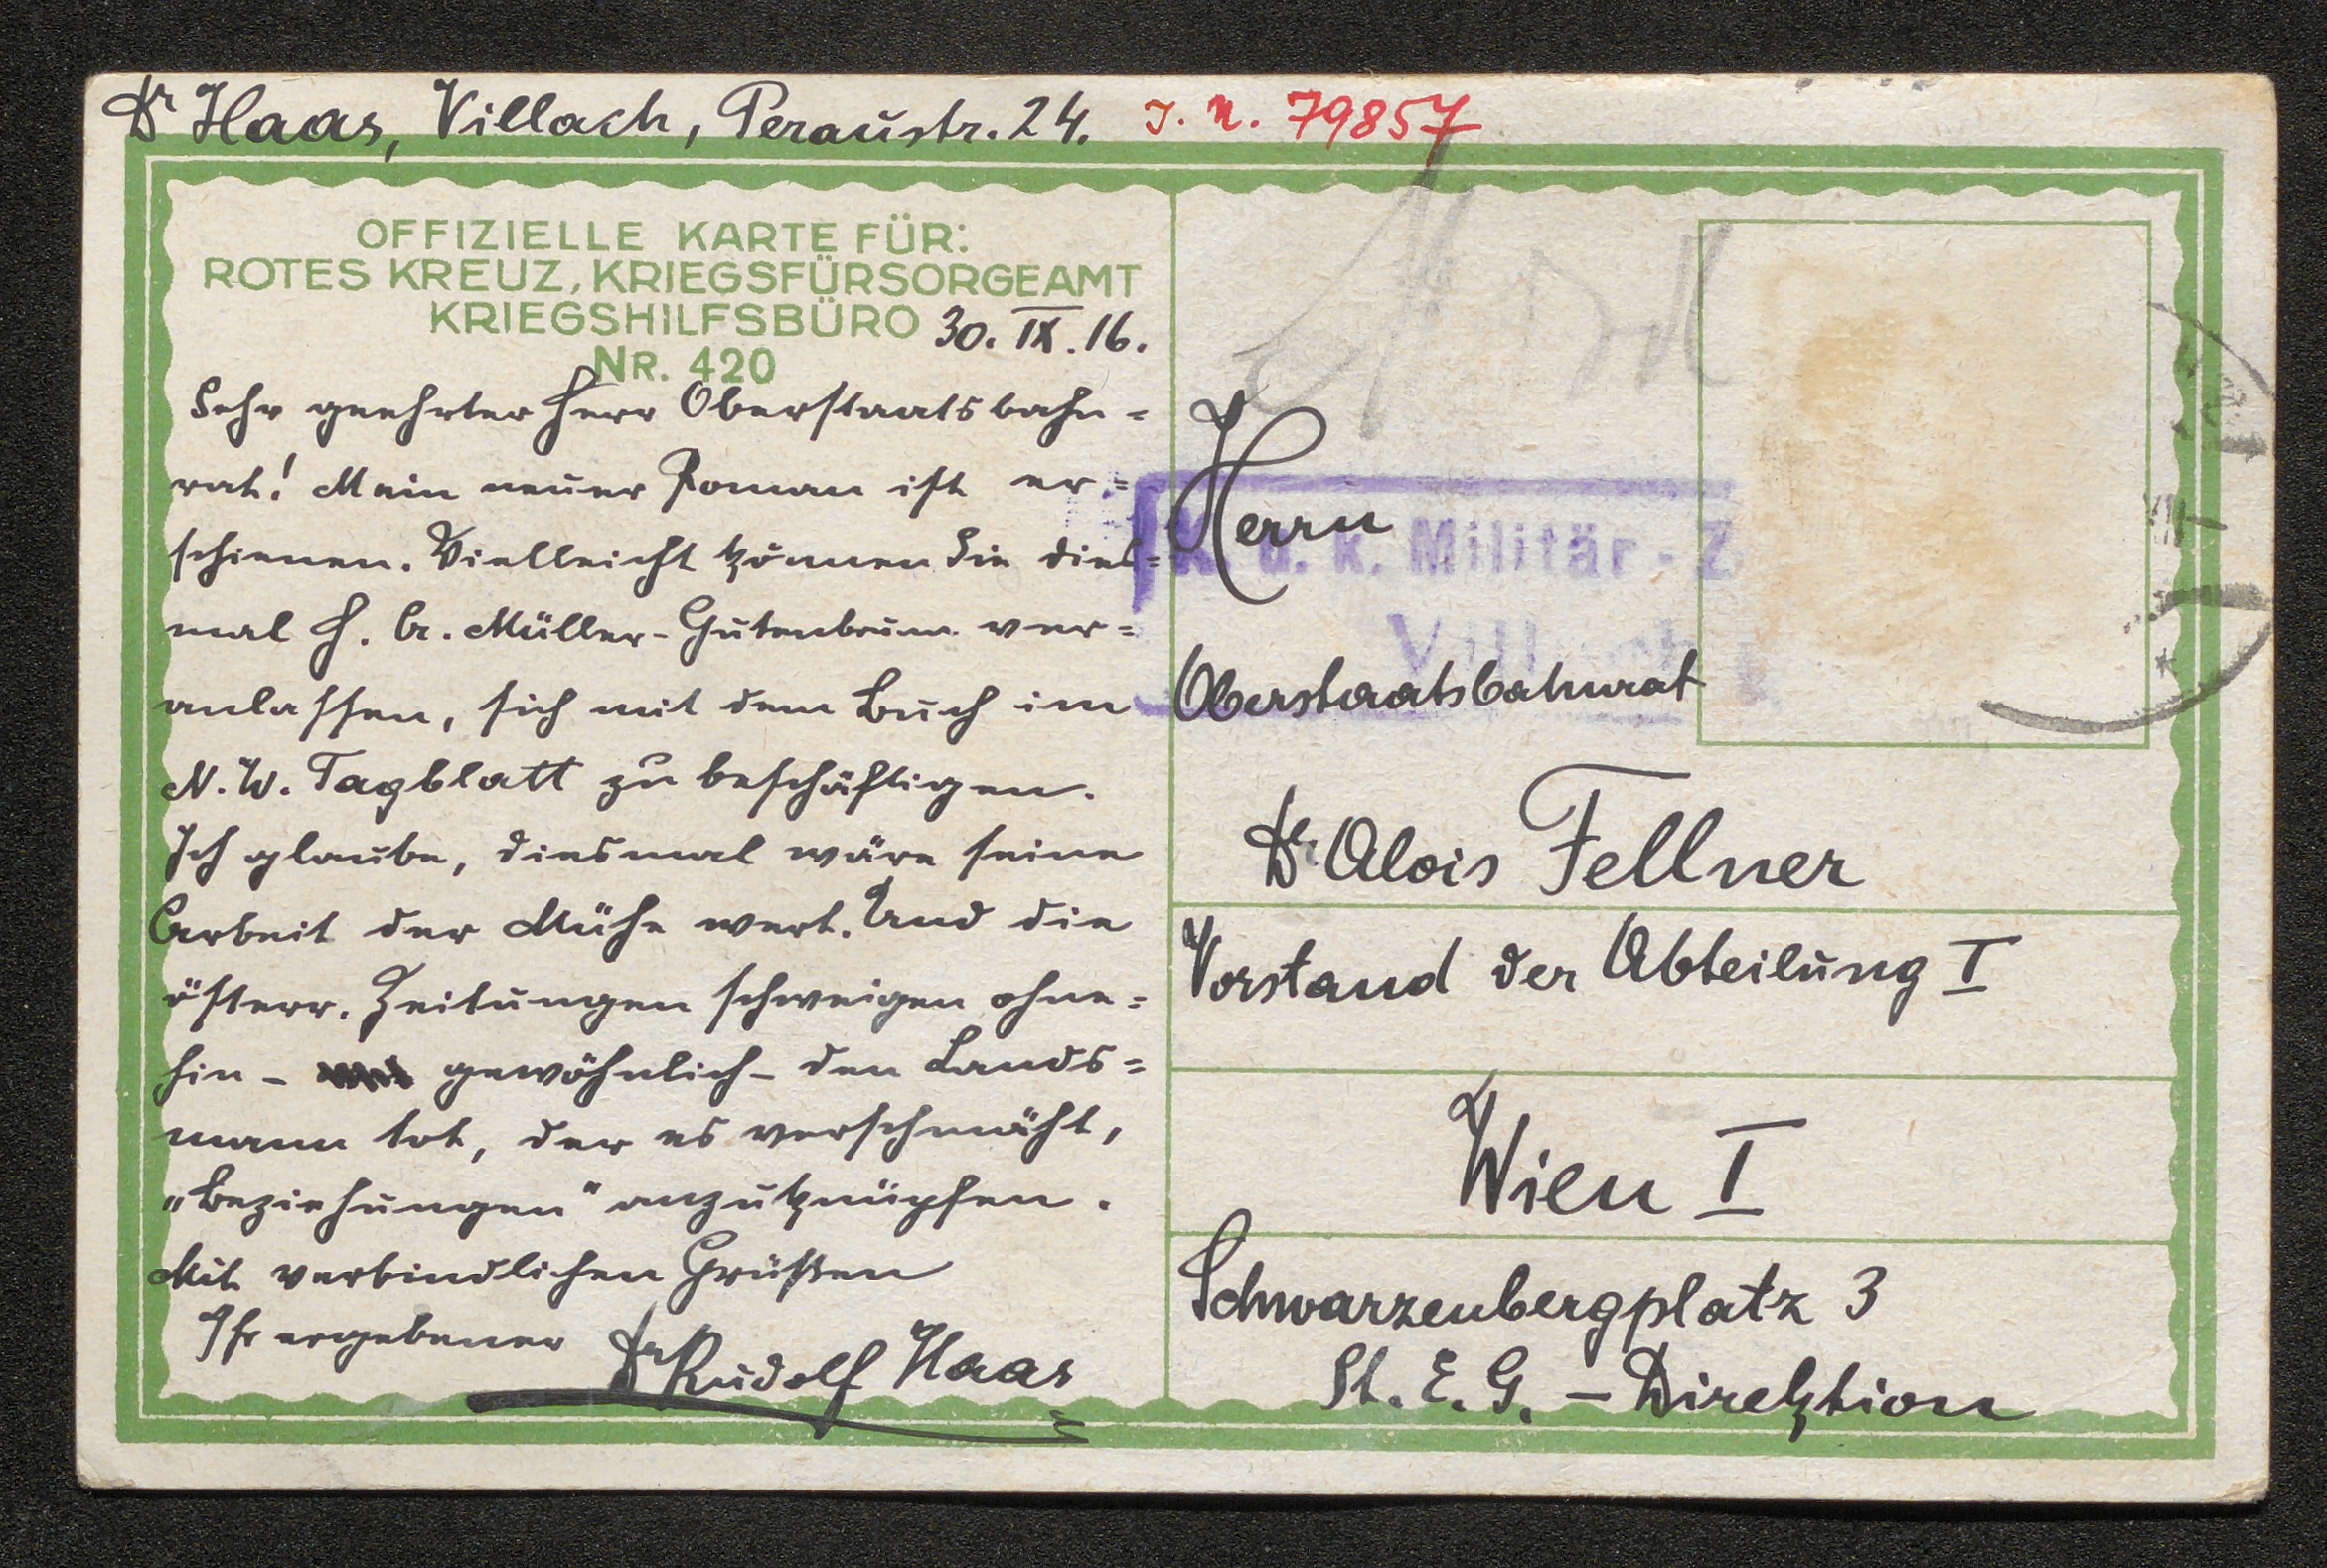 Dr Haas, Villach, Peraustr. 24. J. N. 79857
OFFIZIELLE KARTE FÜR:
ROTES KREUZ, KRIEGSFÜRSORGEAMT
KRIEGSHILFSBÜRO 30. IX. 16.
NR. 420
Sehr geehrter Herr Oberstaatsbahn=
rat! Mein neuer Roman ist er=
schienen. Vielleicht können Sie dies=
mal H. A. Müller-Gutenbrunn ver=
anlassen, sich mit dem Buch im
N. W. Tagblatt zu beschäftigen.
Ich glaube, diesmal wäre seine
Arbeit der Mühe wert. Und die
österr. Zeitungen schweigen ohne=
hin - gewöhnlich - den Lands=
mann tot, der es verschmäht,
„Beziehungen" anzuknüpfen.
Mit verbindlichen Grüßen
Ihr ergebener Dr Rudolf Haas
Herrn
K. u. k. Militär - Z
Villach
Oberstaatsbahnrat
Dr Alois Fellner
Vorstand der Abteilung I
Wien I
Schwarzenbergplatz 3
St. E. G. - Direktion